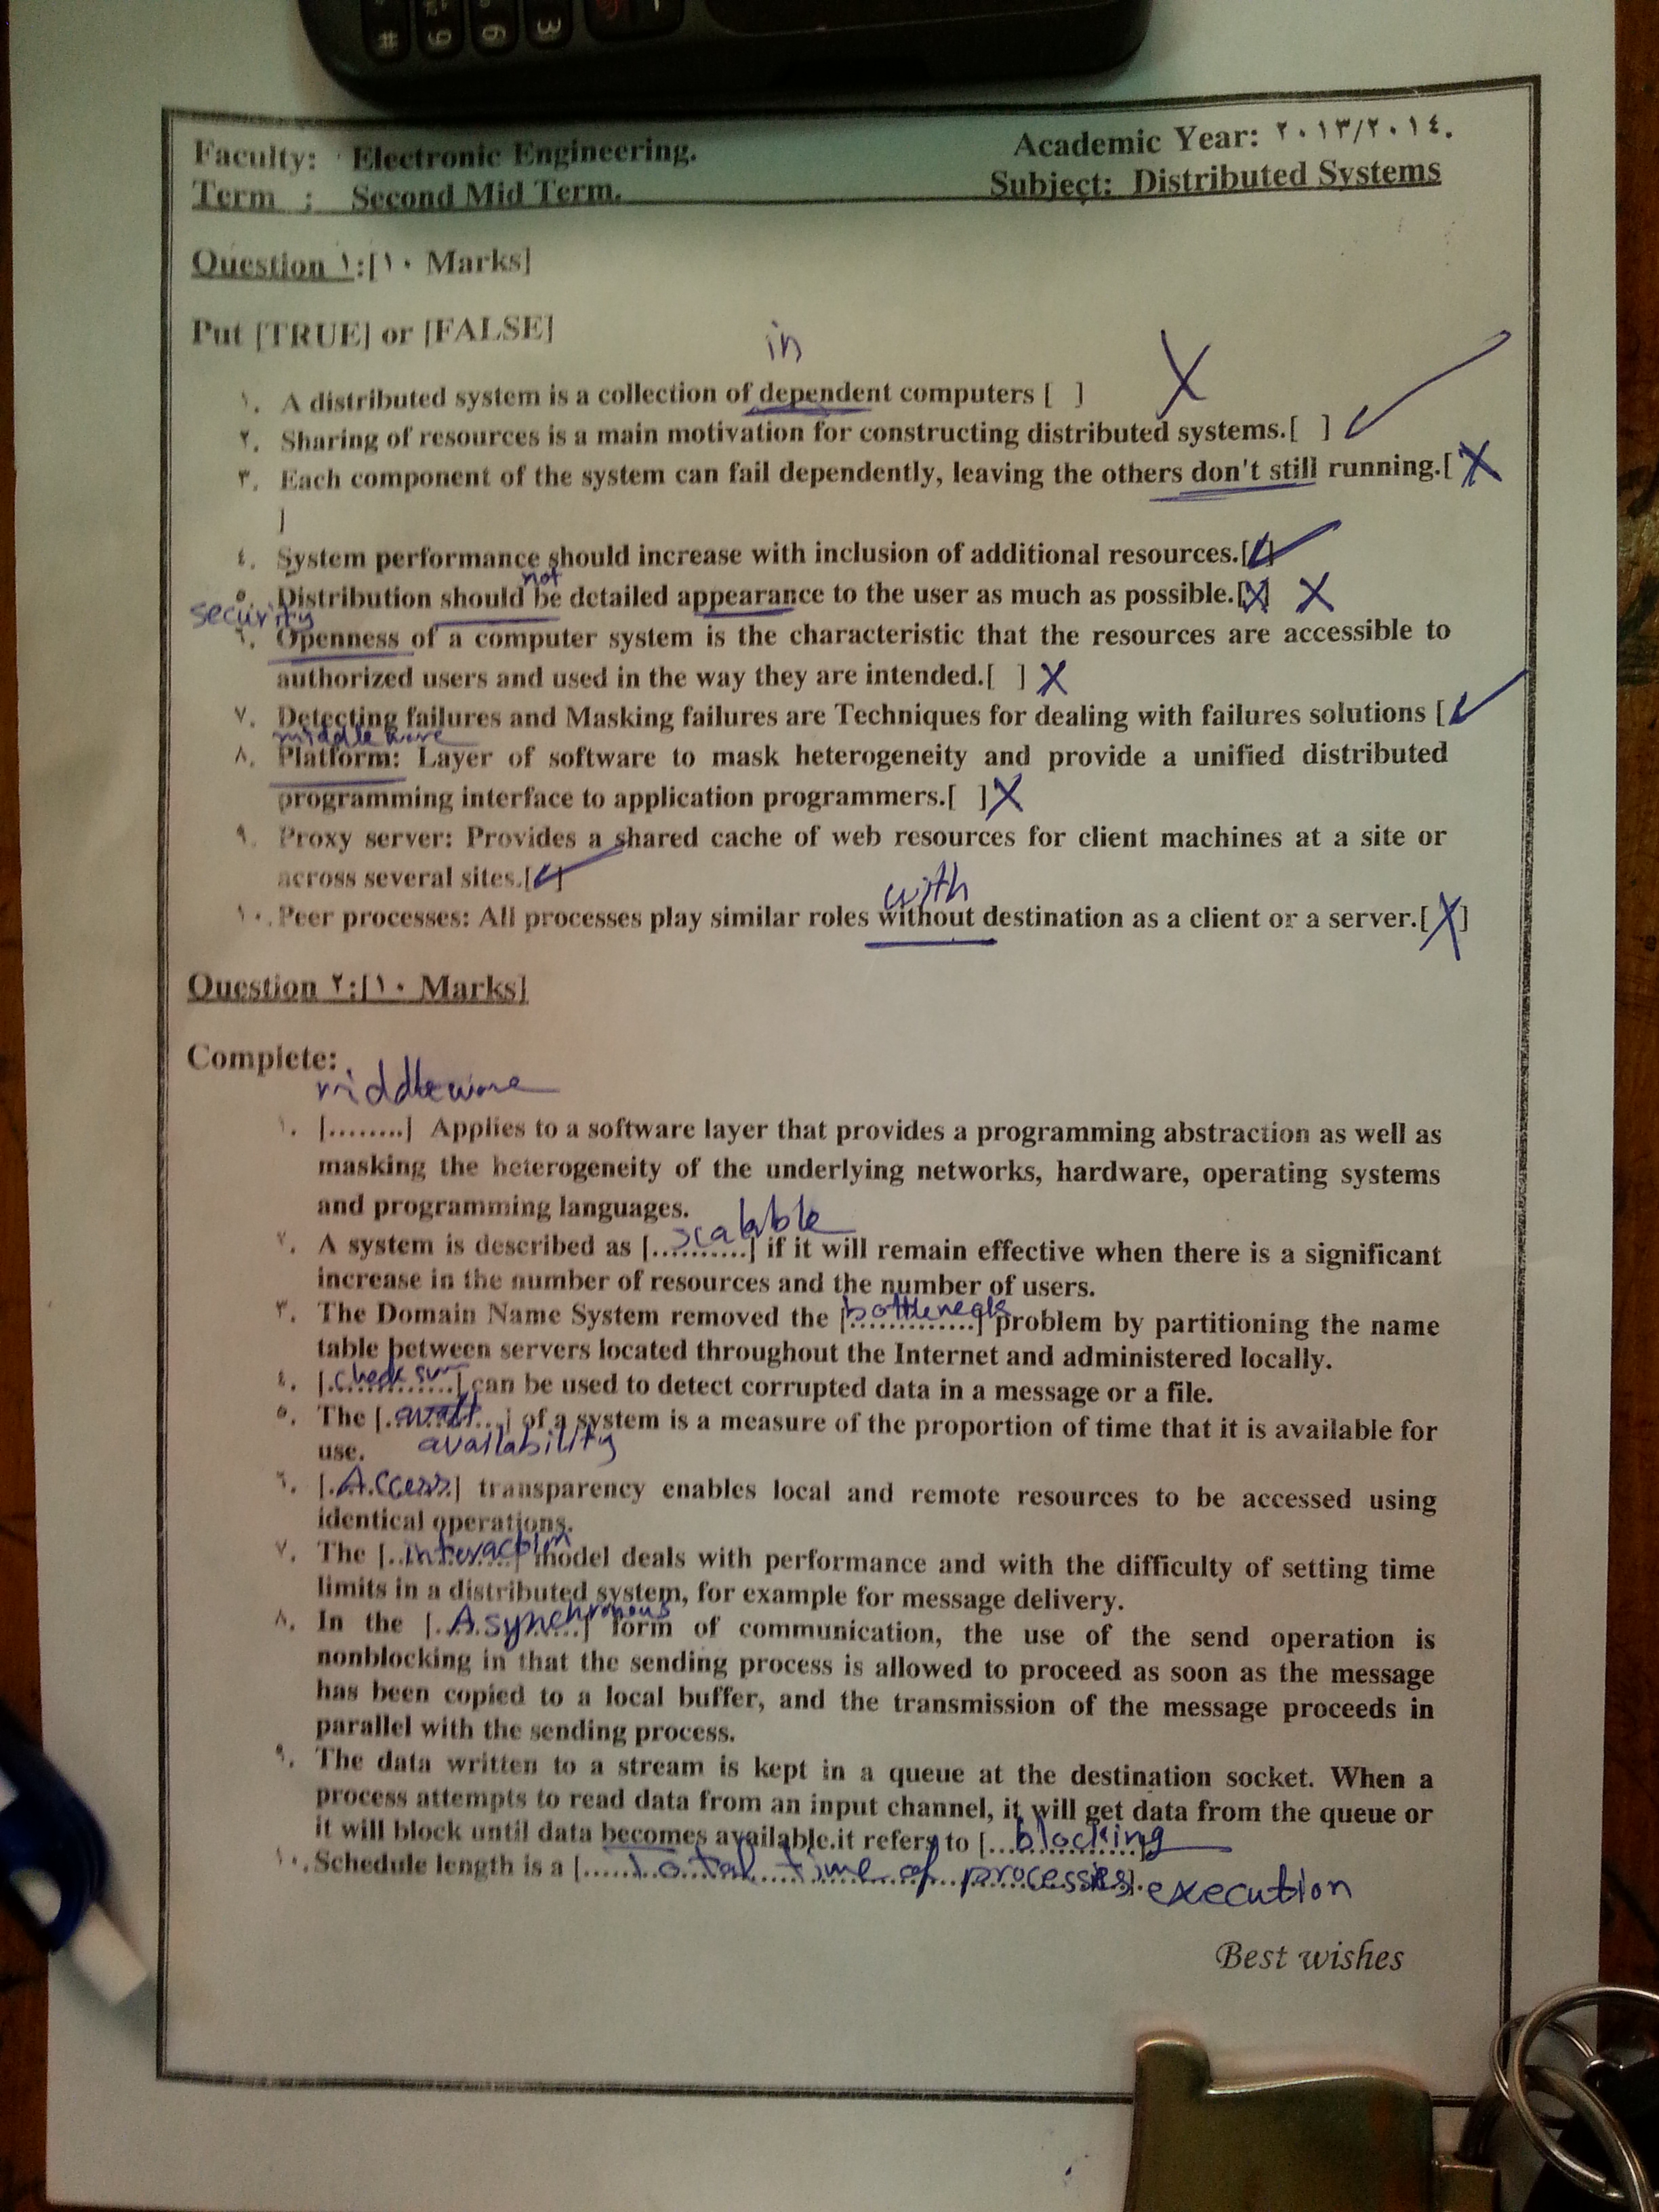 # 9 6 3
Faculty: Electronic Engineering. Academic Year: ٢٠١٣/٢٠١٤.
Term : Second Mid Term. Subject: Distributed Systems
Question ١:[١٠ Marks]
Put [TRUE] or [FALSE]
in
١. A distributed system is a collection of dependent computers [ ] X
٢. Sharing of resources is a main motivation for constructing distributed systems.[ ] ✓
٣. Each component of the system can fail dependently, leaving the others don't still running.[ X
]
٤. System performance should increase with inclusion of additional resources.[✓]
not
٥. Distribution should be detailed appearance to the user as much as possible.[X] X
security
٦. Openness of a computer system is the characteristic that the resources are accessible to
authorized users and used in the way they are intended.[ ] X
٧. Detecting failures and Masking failures are Techniques for dealing with failures solutions [ ✓
middleware
٨. Platform: Layer of software to mask heterogeneity and provide a unified distributed
programming interface to application programmers.[ ] X
٩. Proxy server: Provides a shared cache of web resources for client machines at a site or
across several sites.[✓]
with
١٠. Peer processes: All processes play similar roles without destination as a client or a server.[X]
Question ٢:[١٠ Marks]
Complete:
middleware
١. [........] Applies to a software layer that provides a programming abstraction as well as
masking the heterogeneity of the underlying networks, hardware, operating systems
and programming languages.
٢. A system is described as [scalable] if it will remain effective when there is a significant
increase in the number of resources and the number of users.
٣. The Domain Name System removed the [bottleneck] problem by partitioning the name
table between servers located throughout the Internet and administered locally.
٤. [check sum] can be used to detect corrupted data in a message or a file.
٥. The [..........] of a system is a measure of the proportion of time that it is available for
use. availability
٦. [Access] transparency enables local and remote resources to be accessed using
identical operations.
٧. The [interaction] model deals with performance and with the difficulty of setting time
limits in a distributed system, for example for message delivery.
٨. In the [Asynchronous] form of communication, the use of the send operation is
nonblocking in that the sending process is allowed to proceed as soon as the message
has been copied to a local buffer, and the transmission of the message proceeds in
parallel with the sending process.
٩. The data written to a stream is kept in a queue at the destination socket. When a
process attempts to read data from an input channel, it will get data from the queue or
it will block until data becomes available.it refers to [...blocking]
١٠. Schedule length is a [......total time of processes]. execution
Best wishes